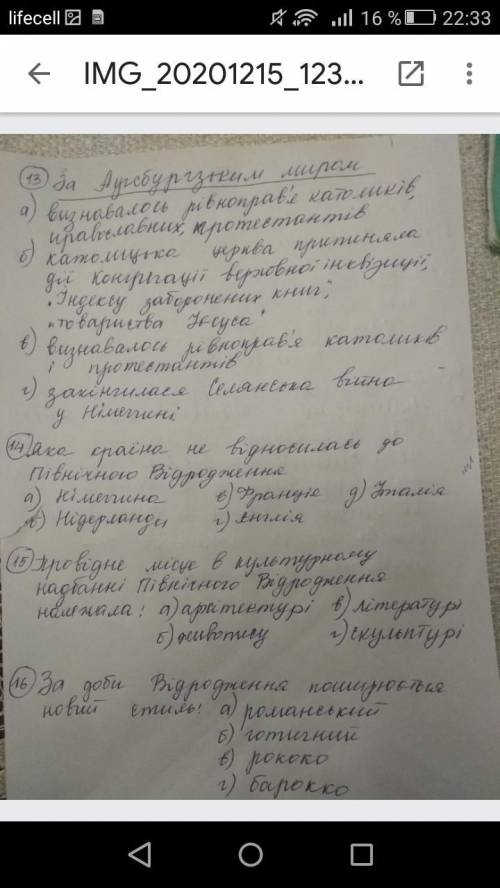 lifecell 16 % 22:33
IMG_20201215_123...
13 За Аугсбургзьким миром
а) визнавалось рівноправ'є католиків,
православних, протестантів
б) католицька церква припиняла
дії Конгрегації верховної інквізиції,
"Індексу заборонених книг",
"товариства Ісуса"
в) визнавалось рівноправ'я католиків
і протестантів
г) закінчилася Селянська війна
у Німеччині
14 Яка країна не відносилась до
Північного Відродження
а) Німеччина в) Франція д) Італія
б) Нідерланди г) Англія
15 Провідне місце в культурному
надбанні Північного Відродження
належала: а) архітектурі в) літературі
б) живопису г) скульптурі
16 За доби Відродження поширюється
новий стиль: а) романський
б) готичний
в) рококо
г) барокко